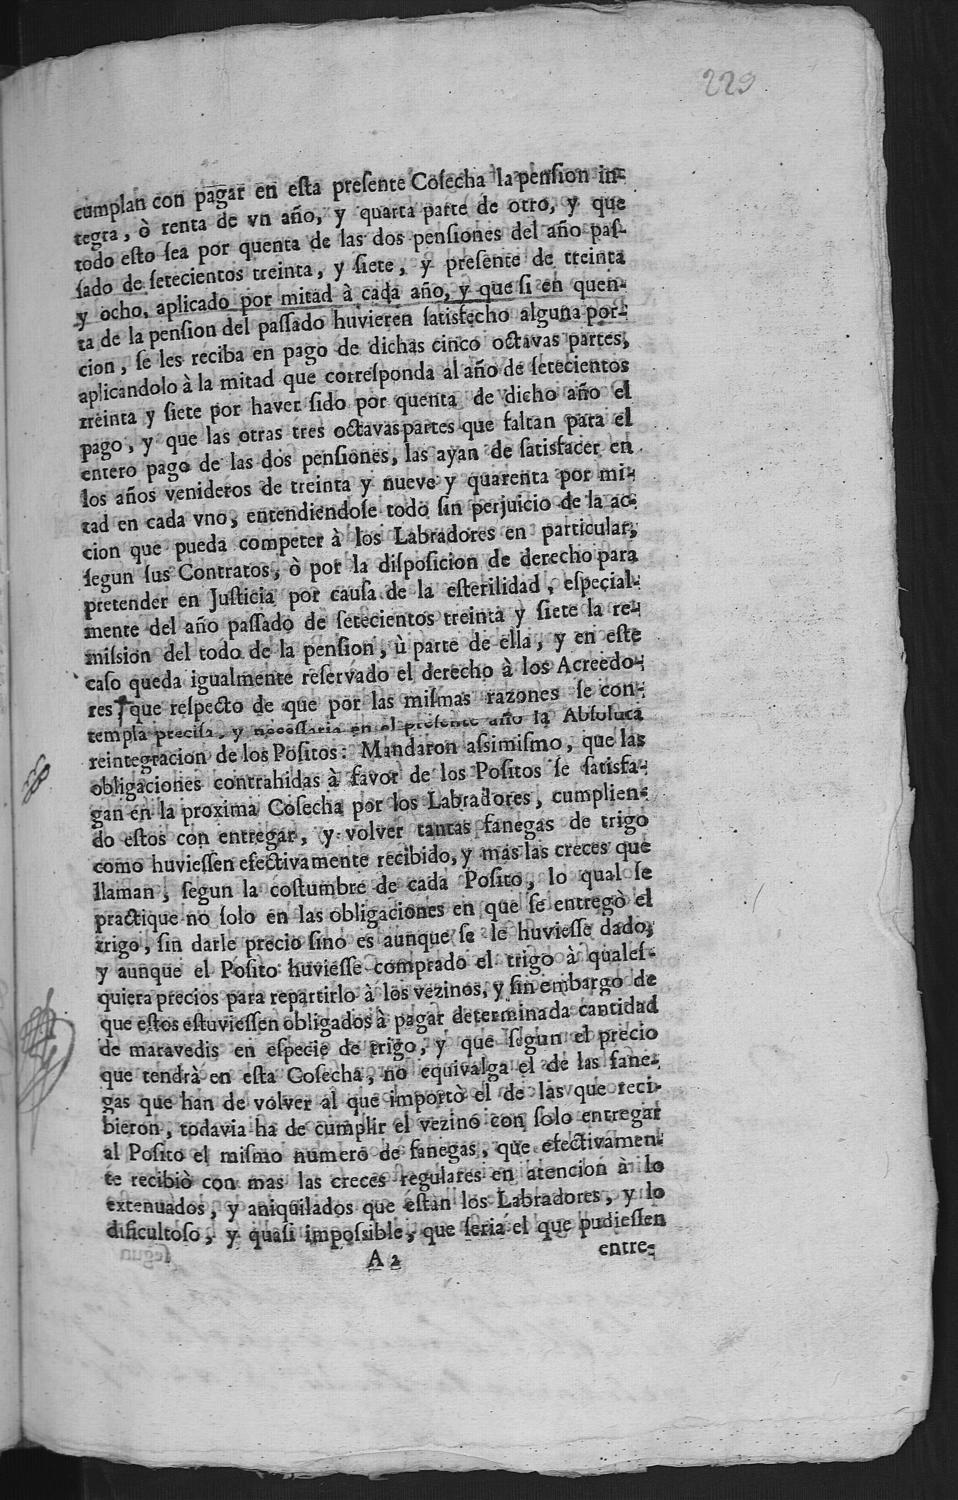 229
cumplan con pagar en esta presente Cosecha la pension in-
tegra, ò renta de vn año, y quarta parte de otro, y que
todo esto sea por quenta de las dos pensiones del año pas-
sado de setecientos treinta, y siete, y presente de treinta
y ocho, aplicado por mitad à cada año, y que si en quen-
ta de la pension del passado huvieren satisfecho alguna por-
cion, se les reciba en pago de dichas cinco octavas partes,
aplicandolo à la mitad que corresponda al año de setecientos
treinta y siete por haver sido por quenta de dicho año el
pago, y que las otras tres octavas partes que faltan para el
entero pago de las dos pensiones, las ayan de satisfacer en
los años venideros de treinta y nueve y quarenta por mi-
tad en cada vno, entendiendose todo sin perjuicio de la ac-
cion que pueda competer à los Labradores en particular,
segun sus Contratos, ò por la disposicion de derecho para
pretender en Justicia por causa de la esterilidad, especial-
mente del año passado de setecientos treinta y siete la re-
mission del todo de la pension, ù parte de ella, y en este
caso queda igualmente reservado el derecho à los Acreedo-
res que respecto de que por las mismas razones se con-
templa precisa, y necessaria en el presente año la Absoluta
reintegracion de los Positos: Mandaron assimismo, que las
obligaciones contrahidas à favor de los Positos se satisfa-
gan en la proxima Cosecha por los Labradores, cumplien-
do estos con entregar, y volver tantas fanegas de trigo
como huviessen efectivamente recibido, y mas las creces que
llaman, segun la costumbre de cada Posito, lo qual se
practique no solo en las obligaciones en que se entregò el
trigo, sin darle precio sino es aunque se le huviesse dado,
y aunque el Posito huviesse comprado el trigo à quales-
quiera precios para repartirlo à los vezinos, y sin embargo de
que estos estuviessen obligados à pagar determinada cantidad
de maravedis en especie de trigo, y que segun el precio
que tendrà en esta Cosecha, no equivalga el de las fane-
gas que han de volver al que importò el de las que reci-
bieron, todavia ha de cumplir el vezino con solo entregar
al Posito el mismo numero de fanegas, que efectivamen-
te recibiò con mas las creces regulares en atencion à lo
extenuados, y aniquilados que èstan los Labradores, y lo
dificultoso, y quasi impossible, que seria el que pudiessen
A 2
entre-